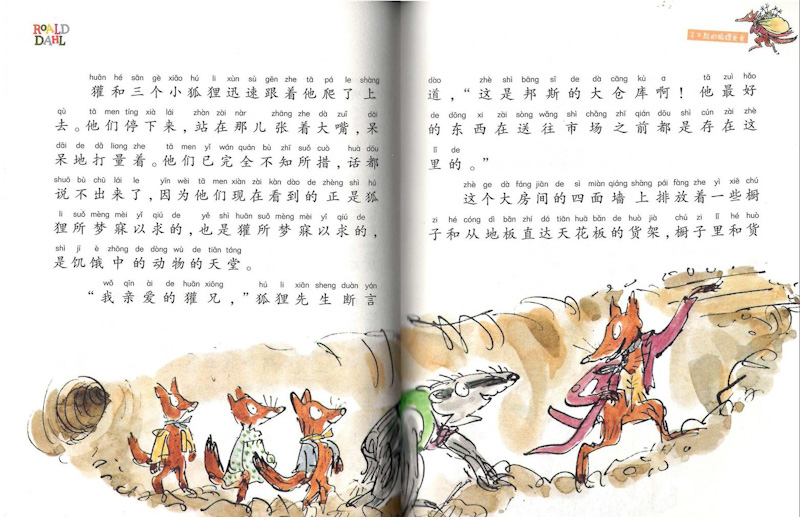 ROALD
DAHL
huān hé sān gè xiǎo hú li xùn sù gēn zhe tā pá le shàng
獾和三个小狐狸迅速跟着他爬了上
qù tā men tíng xià lái zhàn zài nàr zhāng zhe dà zuǐ dāi
去。他们停下来,站在那儿张着大嘴,呆
dāi de dǎ liang zhe tā men yǐ wán quán bù zhī suǒ cuò huà dōu
呆地打量着。他们已完全不知所措,话都
shuō bù chū lái le yīn wèi tā men xiàn zài kàn dào de zhèng shì hú
说不出来了,因为他们现在看到的正是狐
li suǒ mèng mèi yǐ qiú de yě shì huān suǒ mèng mèi yǐ qiú de
狸所梦寐以求的,也是獾所梦寐以求的,
shì jī è zhōng de dòng wù de tiān táng
是饥饿中的动物的天堂。
wǒ qīn ài de huān xiōng hú li xiān sheng duàn yán
“我亲爱的獾兄,”狐狸先生断言
了不起的狐狸爸爸
dào zhè shì bāng sī de dà cāng kù a tā zuì hǎo
道,“这是邦斯的大仓库啊!他最好
de dōng xi zài sòng wǎng shì chǎng zhī qián dōu shì cún zài zhè
的东西在送往市场之前都是存在这
lǐ de
里的。”
zhè ge dà fáng jiān de sì miàn qiáng shàng pái fàng zhe yì xiē chú
这个大房间的四面墙上排放着一些橱
zi hé cóng dì bǎn zhí dá tiān huā bǎn de huò jià chú zi lǐ hé huò
子和从地板直达天花板的货架,橱子里和货